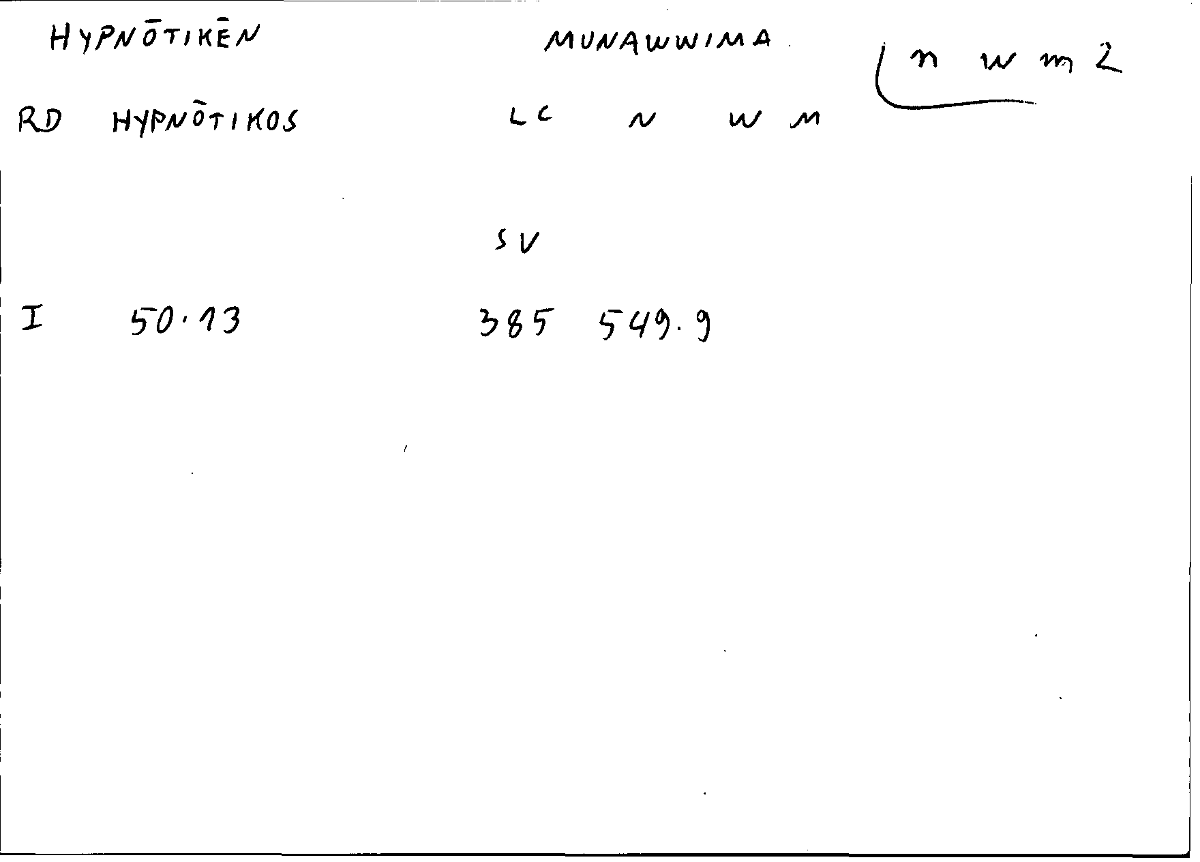 HYPNŌTIKĒN MUNAWWIMA n w m 2
RD HYPNŌTIKOS LC N W M
SV
I 50.13 385 549.9